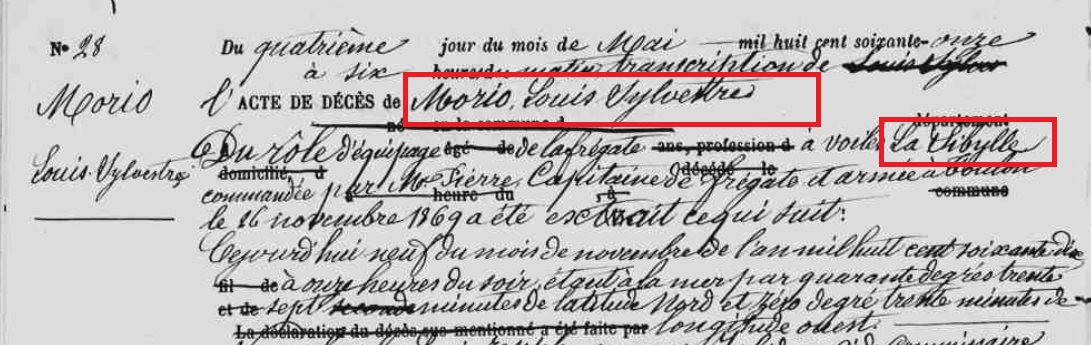 N° 28
Du quatrième jour du mois de Mai mil huit cent soixante-onze
à six heures du matin transcription de Louis Sylves
Morio
l'ACTE DE DÉCÈS de Morio, Louis Sylvestre
né en la commune d département
Du rôle d'équipage âgé de de la frégate ans, profession d à voiles La Sibylle
Louis Sylvestre
domicilié, d décédé le
commandée par Mr Pierre, Capitaine de frégate et armée à Toulon
heure du à commune
le 26 novembre 1869 a été extrait ce qui suit:
Cejourd'hui neuf du mois de novembre de l'an mil huit cent soixante dix
fil de à onze heures du soir, étant à la mer par quarante degrés trente
et de sept secondes minutes de latitude Nord et zéro degré trente minutes de
La déclaration du décès sus-mentionné a été faite par longitude ouest.